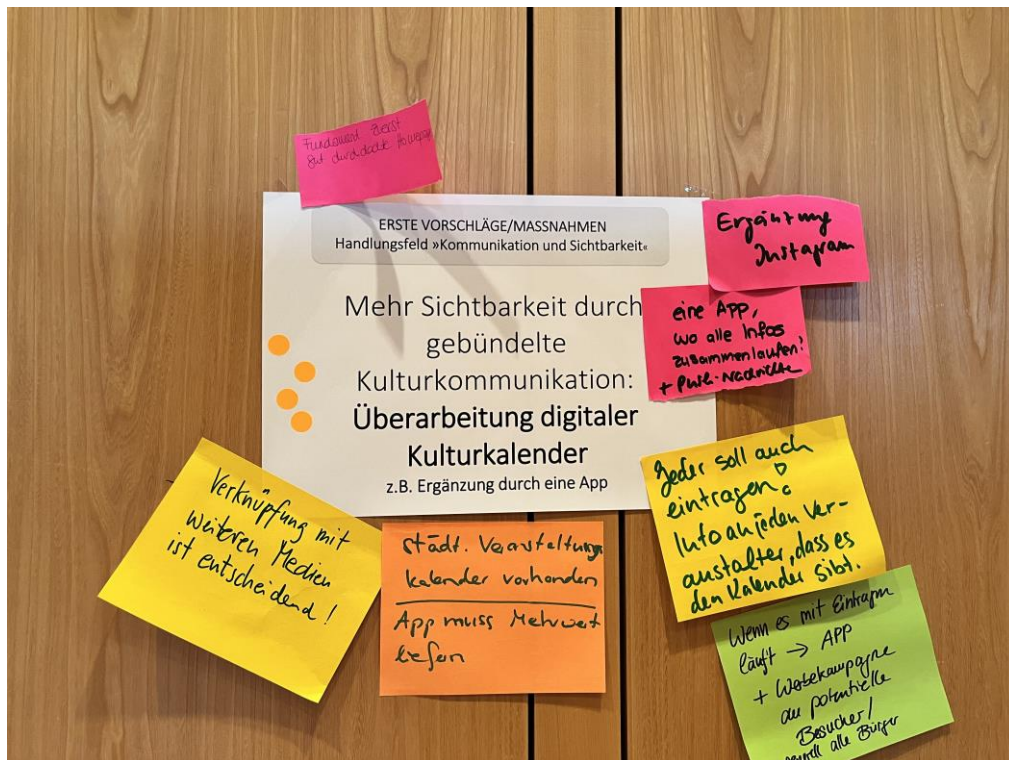 Fundament zuerst
gut durchdachte Homepage
ERSTE VORSCHLÄGE/MASSNAHMEN
Handlungsfeld »Kommunikation und Sichtbarkeit«
Mehr Sichtbarkeit durch
gebündelte
Kulturkommunikation:
Überarbeitung digitaler
Kulturkalender
z.B. Ergänzung durch eine App
Ergänzung
Instagram
eine APP,
wo alle Infos
zusammenlaufen!
+ Push-Nachrichte
Verknüpfung mit
weiteren Medien
ist entscheidend!
städt. Veranstaltungs
kalender vorhanden
App muss Mehrwert
liefern
Jeder soll auch
eintragen!
Info an jeden Ver-
anstalter, dass es
den Kalender gibt.
Wenn es mit Eintragen
läuft → APP
+ Werbekampagne
an potentielle
Besucher/
generell alle Bürger